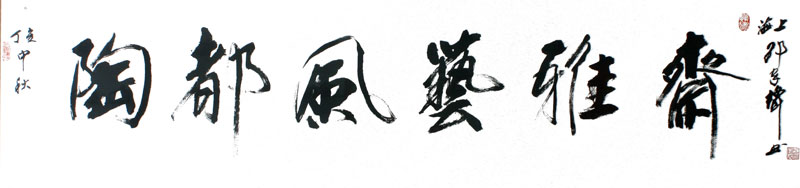 陶都風藝雅齋
丁亥中秋
上海